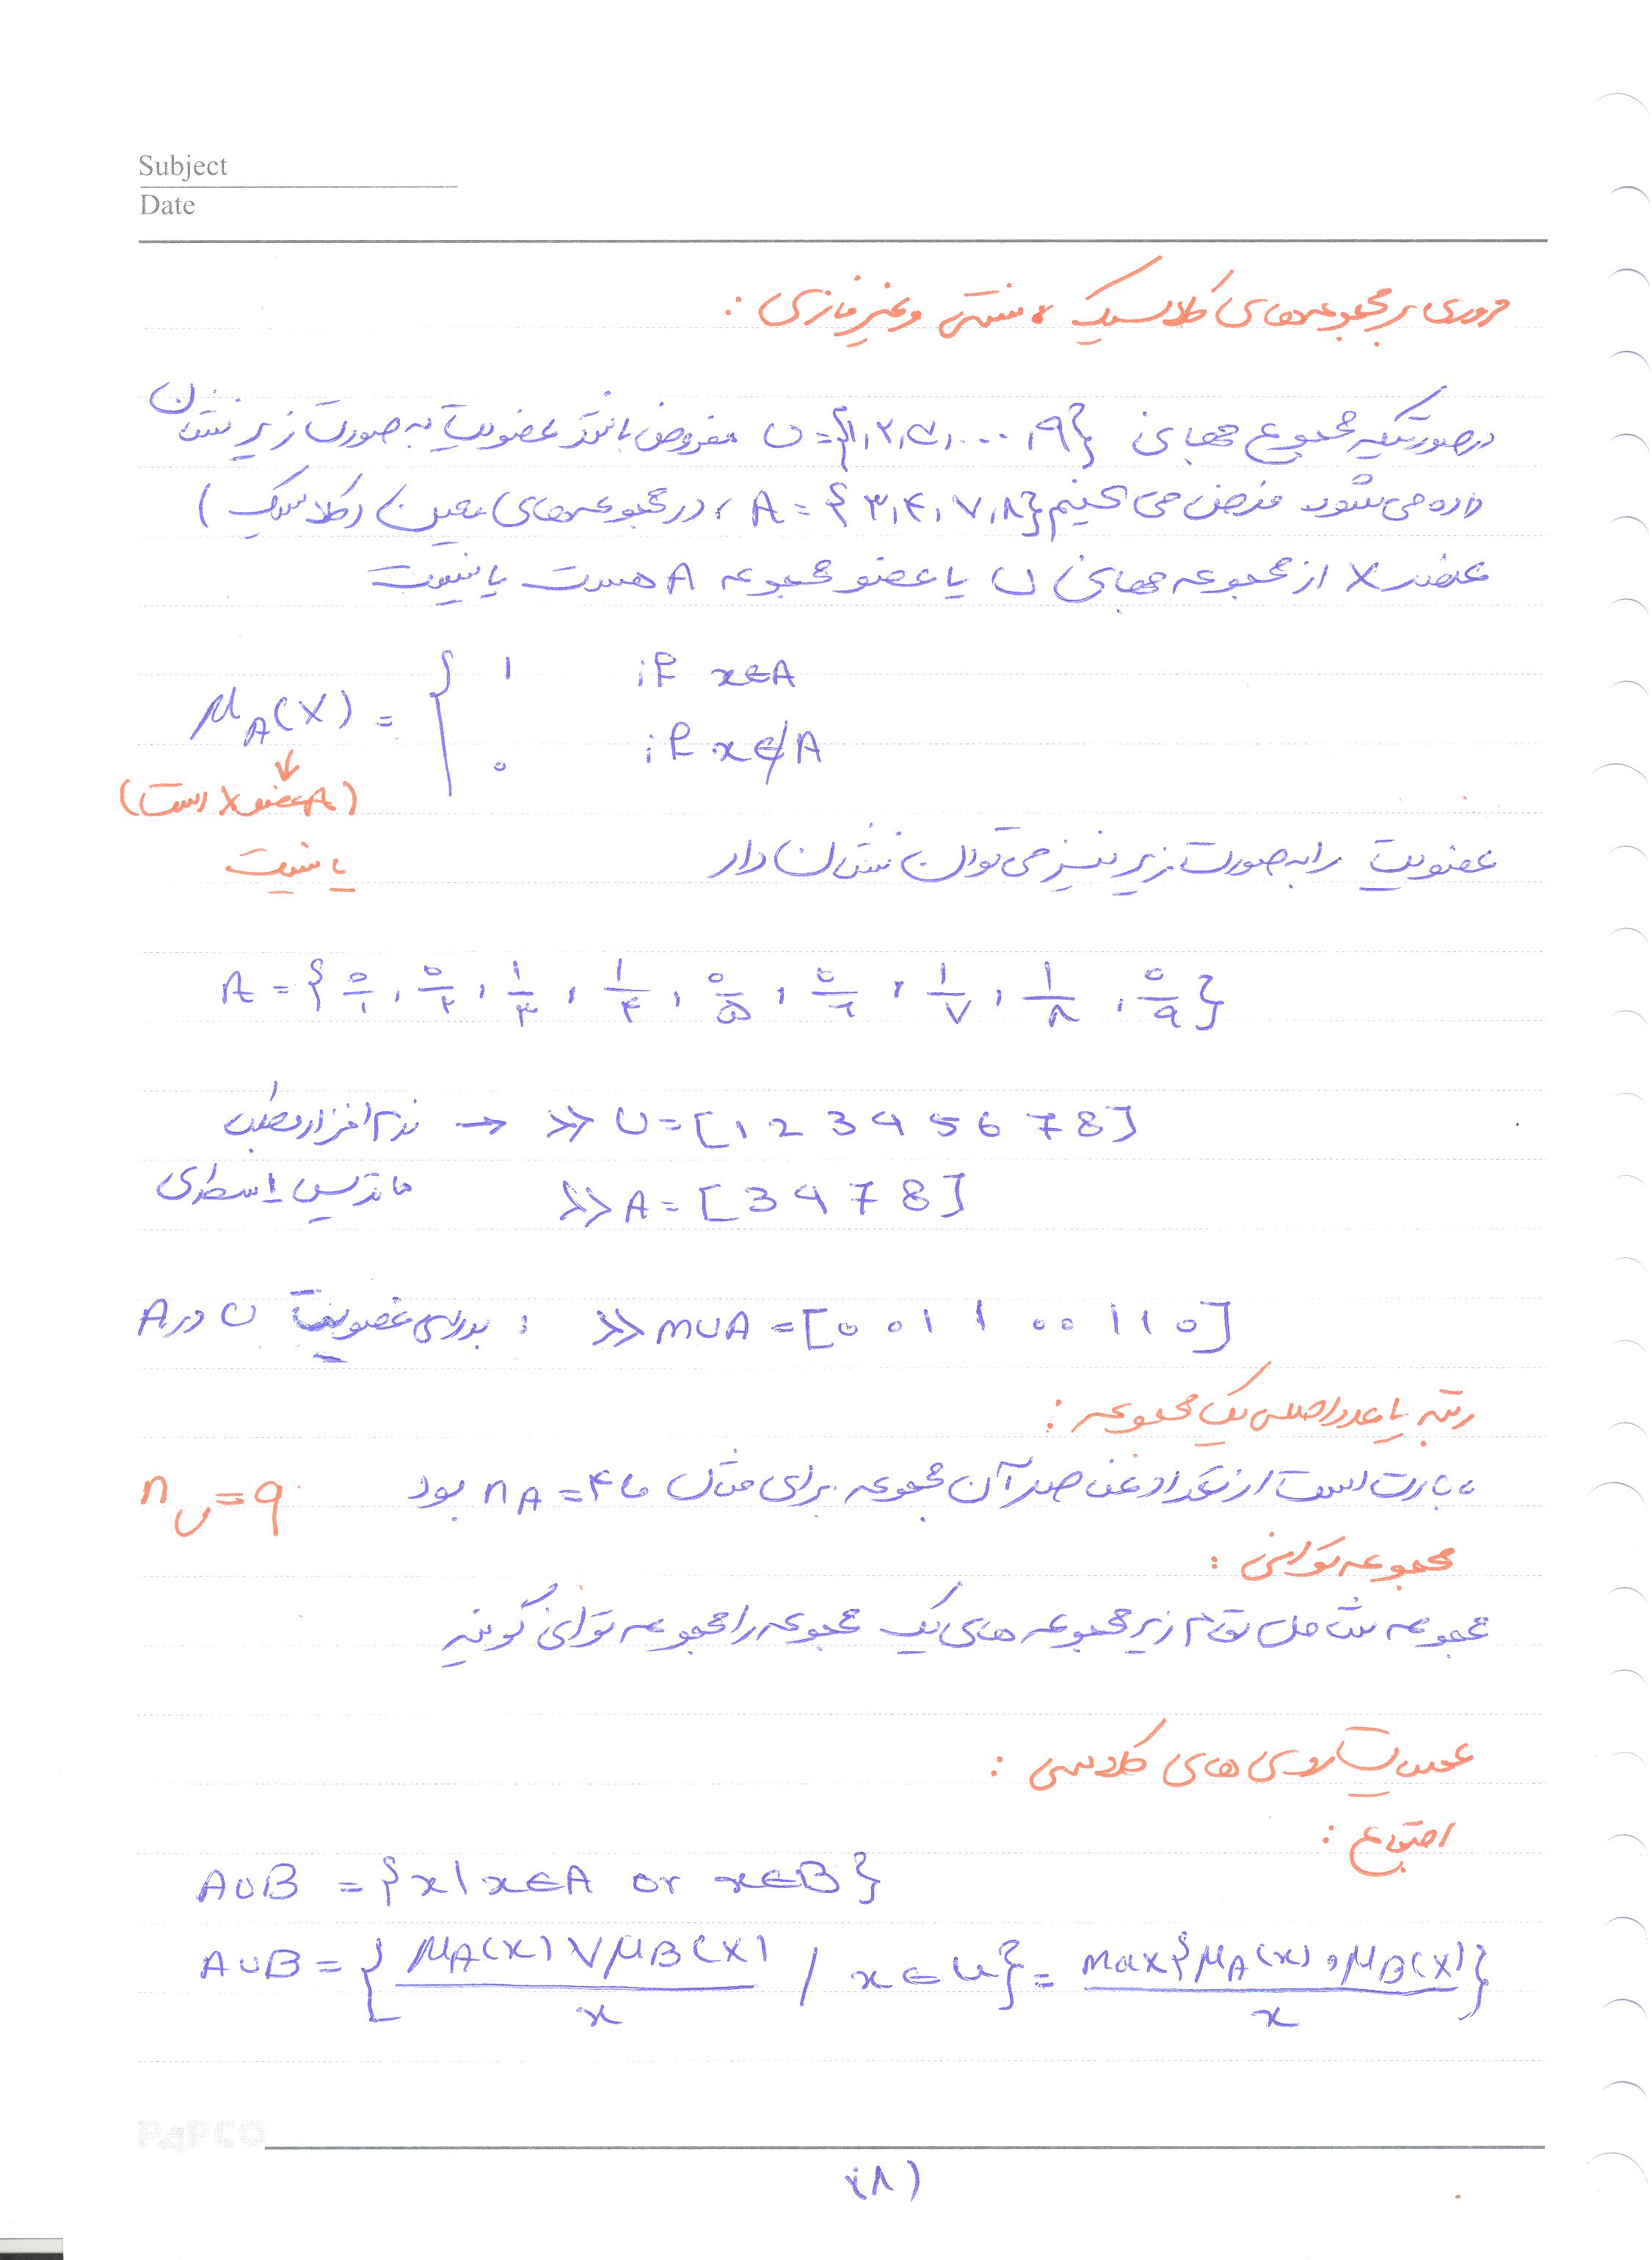 Subject
Date
مروری بر مجموعه‌های کلاسیک ، سنتی و غیرفازی :
درصورتیکه مجموع جهانی U={۱,۲,۳,...,۹} مفروض باشد عضویت به صورت زیر نشان
داده می‌شود فرض می کنیم A = {۳,۴,۷,۸} ، در مجموعه‌های معین (کلاسیک)
عنصر X از مجموعه جهانی U یا عضو مجموعه A هست یا نیست
μA(X) = { ۱ if x∈A
۰ if x∉A
(A عضو X است)
یا نیست
عضویت را به صورت زیر نیز می توان نشان داد
A = {۰/۱ , ۰/۲ , ۱/۳ , ۱/۴ , ۰/۵ , ۰/۶ , ۱/۷ , ۱/۸ , ۰/۹}
نرم افزار مطلب → >> U=[1 2 3 4 5 6 7 8]
ماتریس ۱ سطری >> A=[3 4 7 8]
بررسی عضویت U در A : >> MUA=[0 0 1 1 0 0 1 1 0]
رتبه یا عدد اصلی یک مجموعه :
عبارت است از تعداد عناصر آن مجموعه برای مثال ما nA=۴ بود nU=۹
مجموعه توانی :
مجموعه شامل تمام زیر مجموعه های یک مجموعه را مجموعه توانی گویند
عملیات روی های کلاسی :
اجتماع :
A∪B = {x | x∈A or x∈B}
A∪B = { μA(x) ∨ μB(x) / x / x∈u } = max{μA(x), μB(x)} / x }
PAPCO
(۸)